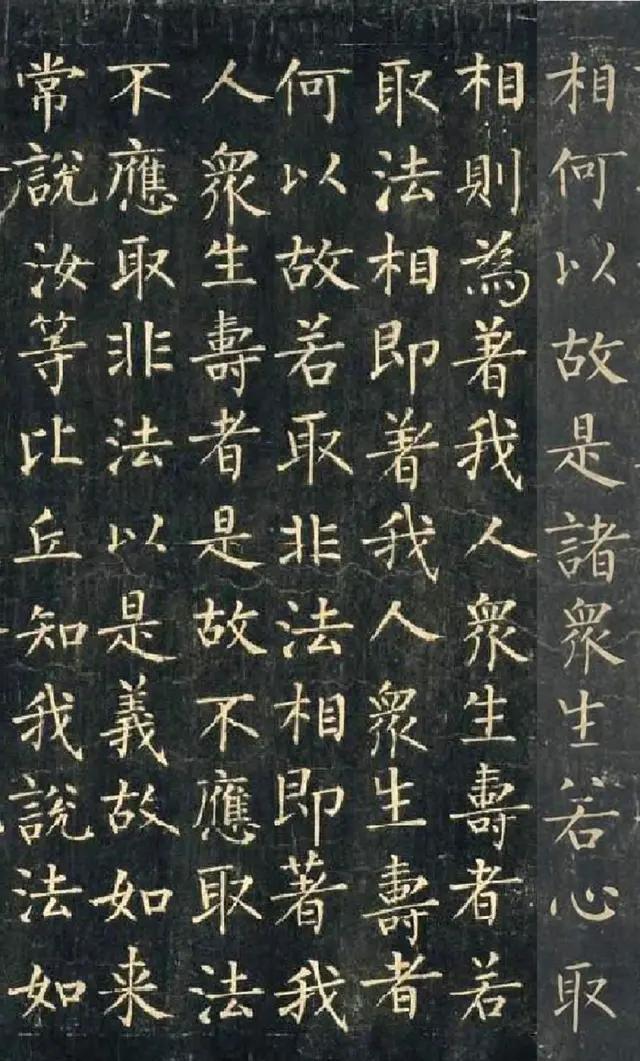 相何以故是諸衆生若心取
相則為著我人衆生壽者若
取法相即著我人衆生壽者
何以故若取非法相即著我
人衆生壽者是故不應取法
不應取非法以是義故如来
常說汝等比丘知我說法如